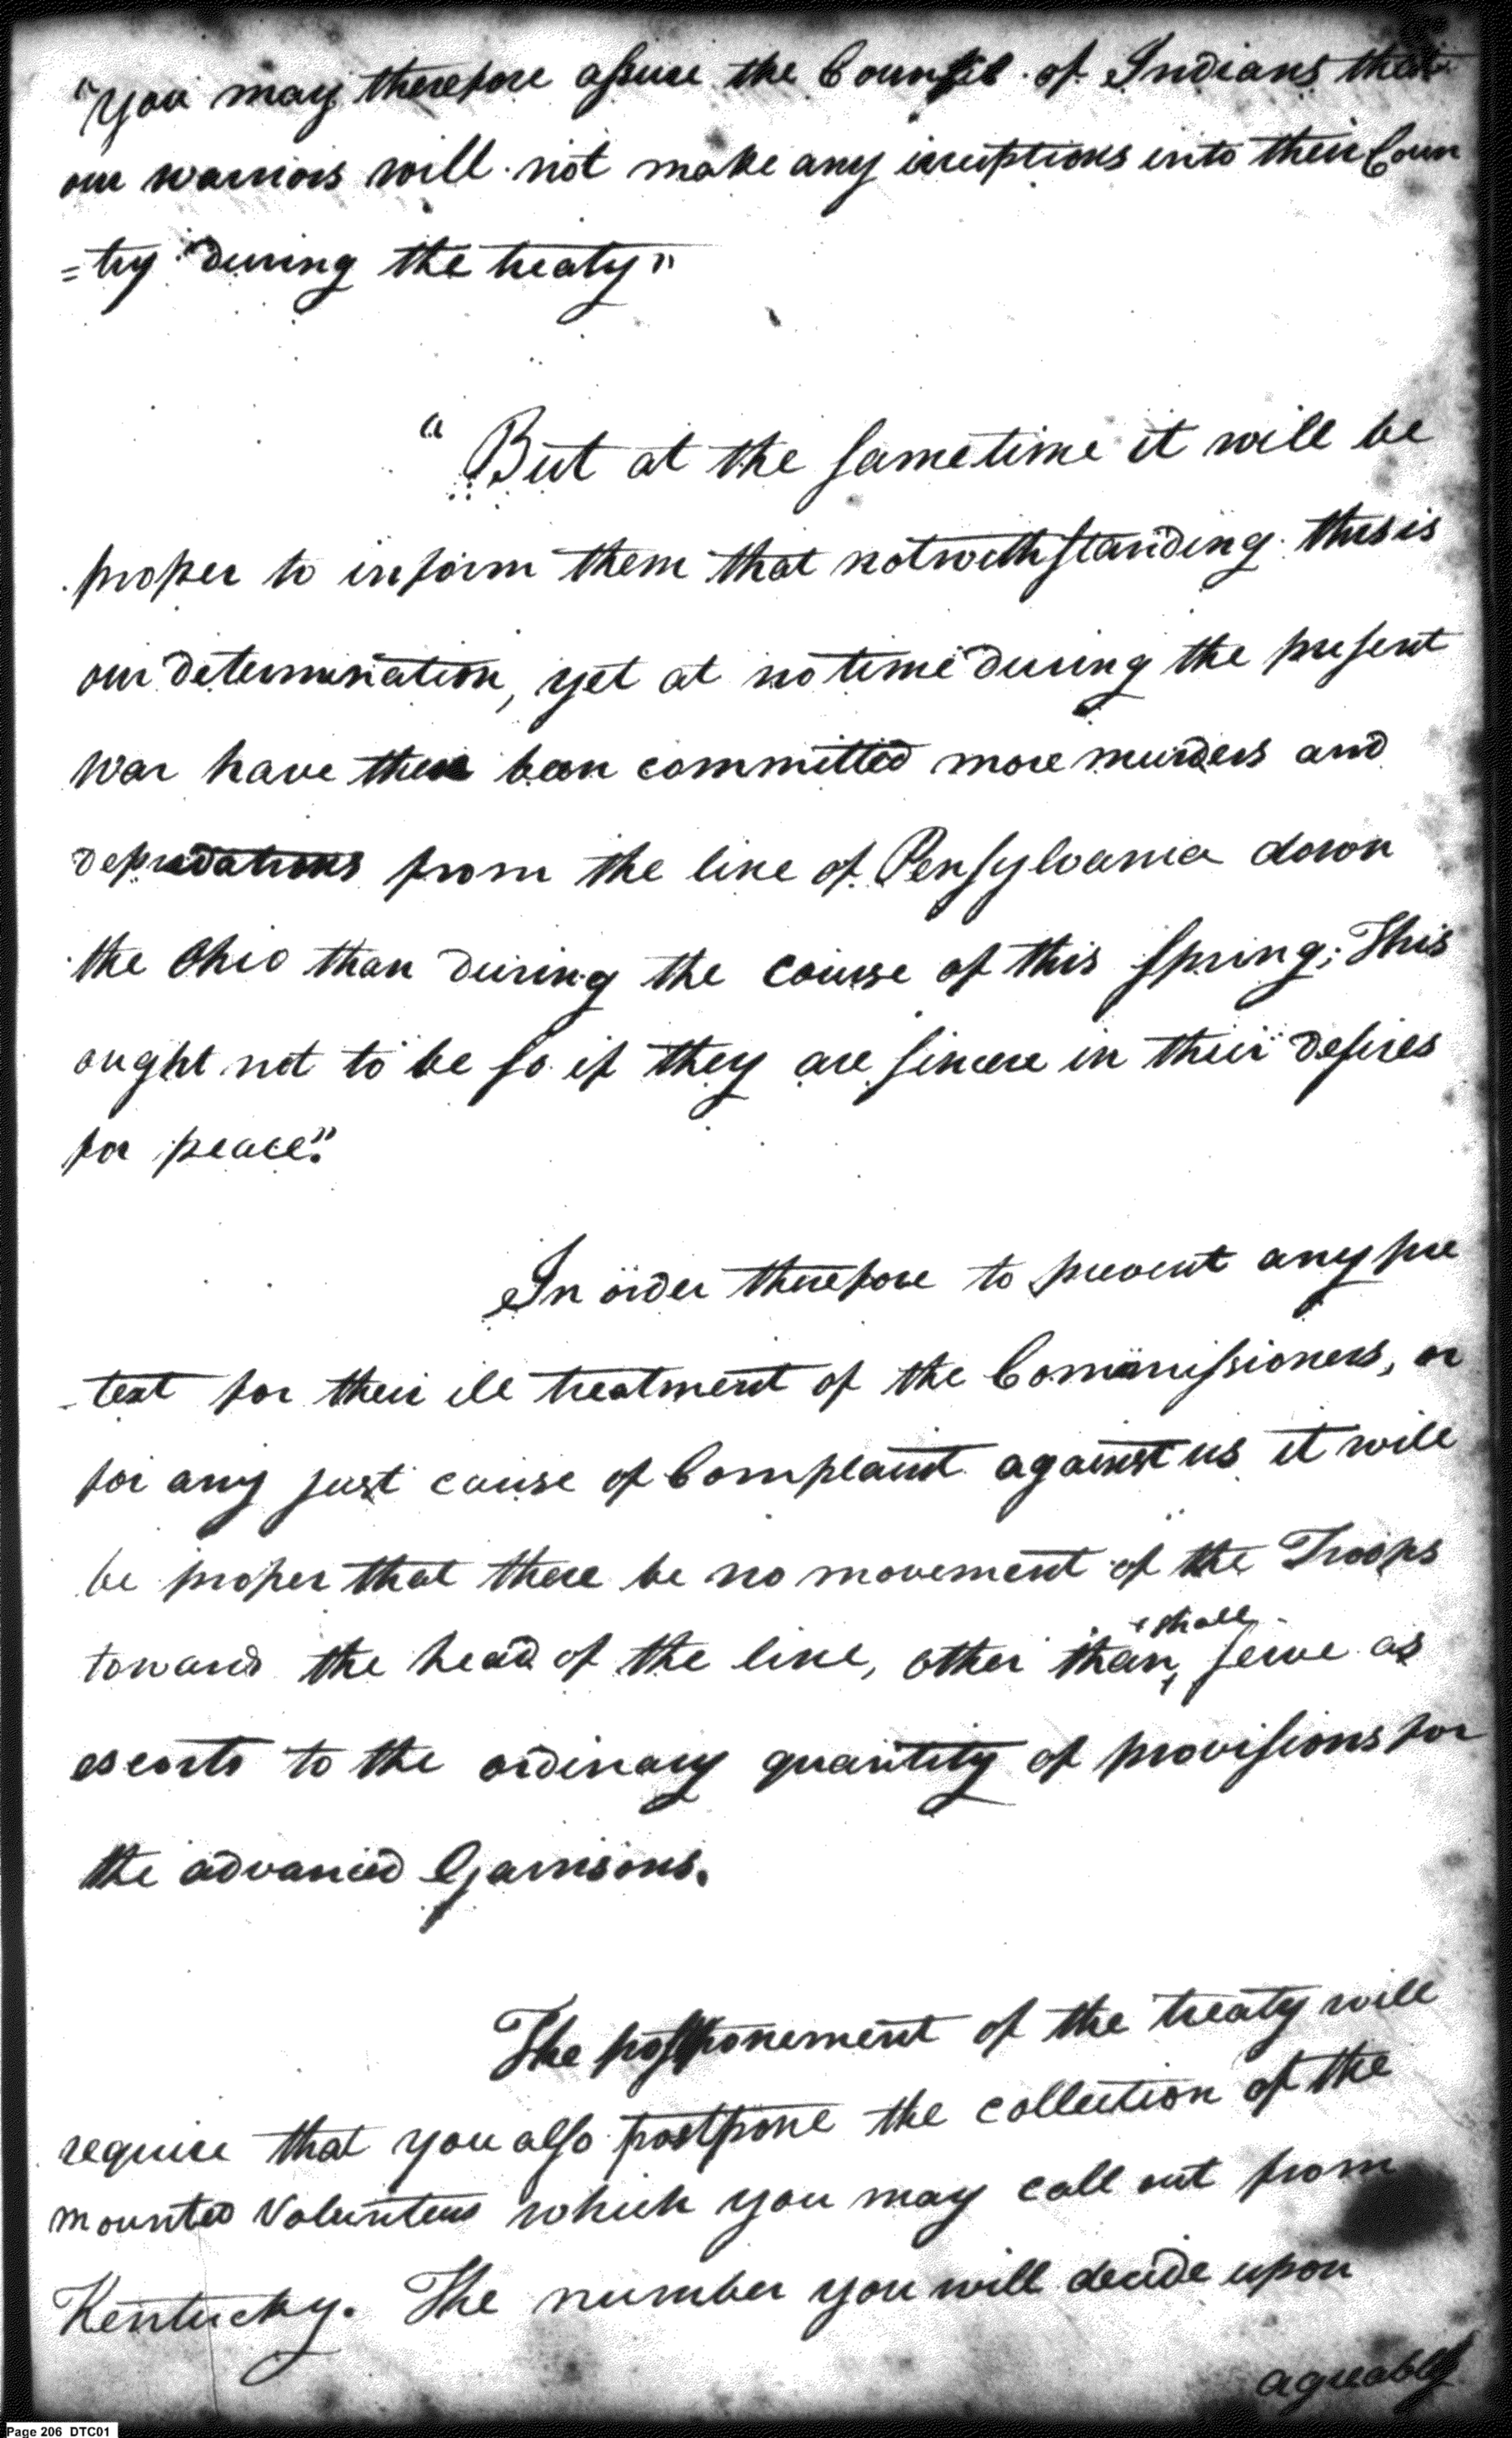 "You may therefore assure the Council of Indians that
our warriors will not make any irruptions into their Coun
=try during the treaty"
"But at the sametime it will be
proper to inform them that notwithstanding this is
our determination, yet at no time during the present
war have there been committed more murders and
depredations from the line of Pensylvania down
the Ohio than during the course of this spring; This
ought not to be so if they are sincere in their desires
for peace."
In order therefore to prevent any pre
-text for their ill treatment of the Commissioners, or
for any just cause of Complaint against us it will
be proper that there be no movement of the Troops
towards the head of the line, other than shall serve as
escorts to the ordinary quantity of provisions for
the advanced Garrisons.
The postponement of the treaty will
require that you also postpone the collection of the
mounted Volunteers which you may call out from
Kentucky. The number you will decide upon
agreably
Page 206 DTC01